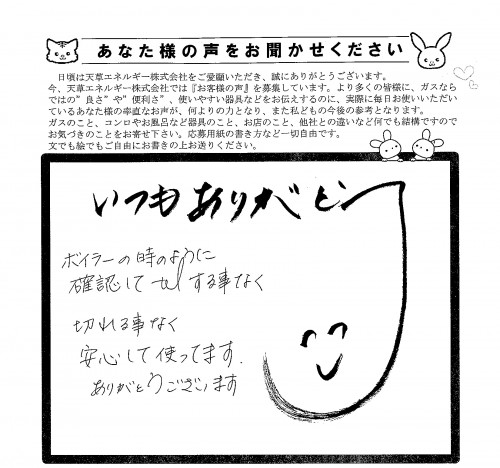 あなた様の声をお聞かせください
日頃は天草エネルギー株式会社をご愛顧いただき、誠にありがとうございます。
今、天草エネルギー株式会社では『お客様の声』を募集しています。より多くの皆様に、ガスなら
ではの”良さ”や”便利さ”、使いやすい器具などをお伝えするのに、実際に毎日お使いいただい
ているあなた様の率直なお声が、何よりの力となり、また私どもの今後の参考となります。
ガスのこと、コンロやお風呂など器具のこと、お店のこと、他社との違いなど何でも結構ですので
お気づきのことをお寄せ下さい。応募用紙の書き方など一切自由です。
文でも絵でもご自由にお書きの上お送りください。
いつもありがとう
ボイラーの時のように
確認して tel する事なく
切れる事なく
安心して使ってます.
ありがとうございます